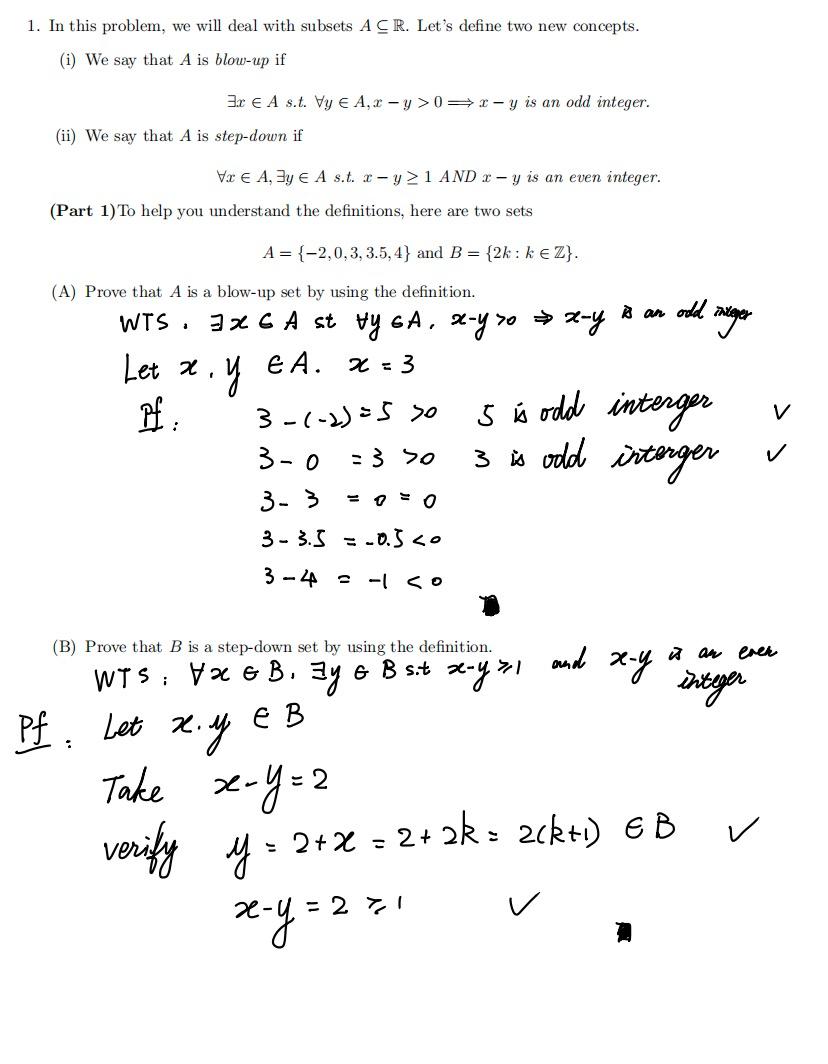 1. In this problem, we will deal with subsets A ⊆ ℝ. Let's define two new concepts.
(i) We say that A is blow-up if
∃x ∈ A s.t. ∀y ∈ A, x − y > 0 ⟹ x − y is an odd integer.
(ii) We say that A is step-down if
∀x ∈ A, ∃y ∈ A s.t. x − y ≥ 1 AND x − y is an even integer.
(Part 1)To help you understand the definitions, here are two sets
A = {−2, 0, 3, 3.5, 4} and B = {2k : k ∈ ℤ}.
(A) Prove that A is a blow-up set by using the definition.
WTS. ∃x ∈ A st ∀y ∈ A. x-y>0 ⇒ x-y is an odd integer
Let x, y ∈ A. x = 3
Pf: 3-(-2) = 5 >0 5 is odd interger ✓
3-0 = 3 >0 3 is odd interger ✓
3-3 = 0 = 0
3-3.5 = -0.5 <0
3-4 = -1 <0
(B) Prove that B is a step-down set by using the definition.
WTS: ∀x ∈ B. ∃y ∈ B s.t x-y ≥ 1 and x-y is an even
integer
Pf: Let x.y ∈ B
Take x-y = 2
verify y = 2+x = 2+2k = 2(k+1) ∈ B ✓
x-y = 2 ≥ 1 ✓